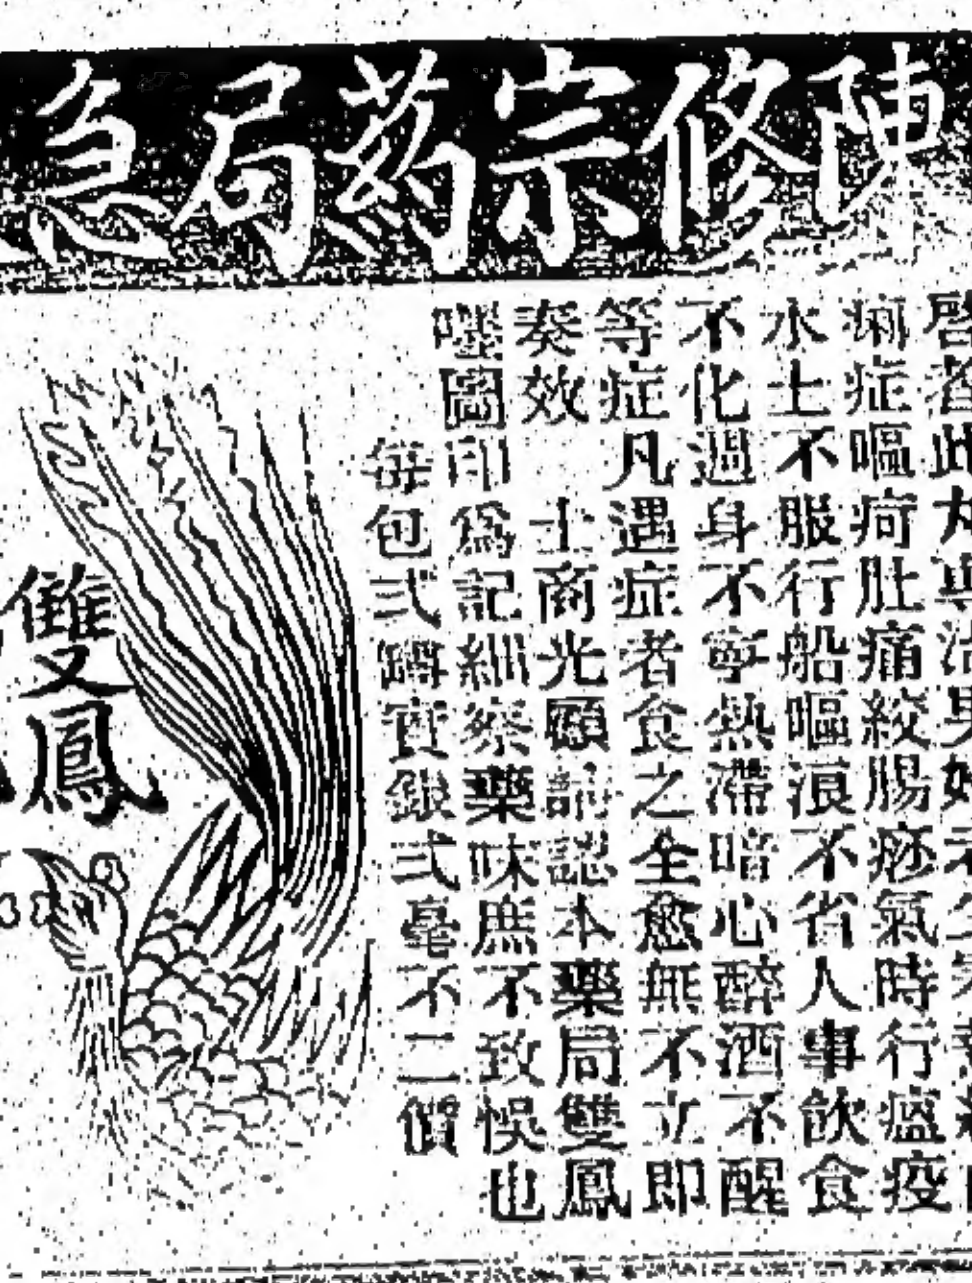 陳修宗葯局急
啓者此丸專治男婦
痢症嘔疴肚痛絞腸痧氣時行瘟疫
水土不服行船嘔浪不省人事飲食
不化過身不寧熱滯暗心醉酒不醒
等症凡遇症者食之全愈無不立即
奏效 士商光顧請認本藥局雙鳳
嘜圖印爲記細察藥味庶不致悞也
每包弍罇實銀弍毫不二價
雙鳳